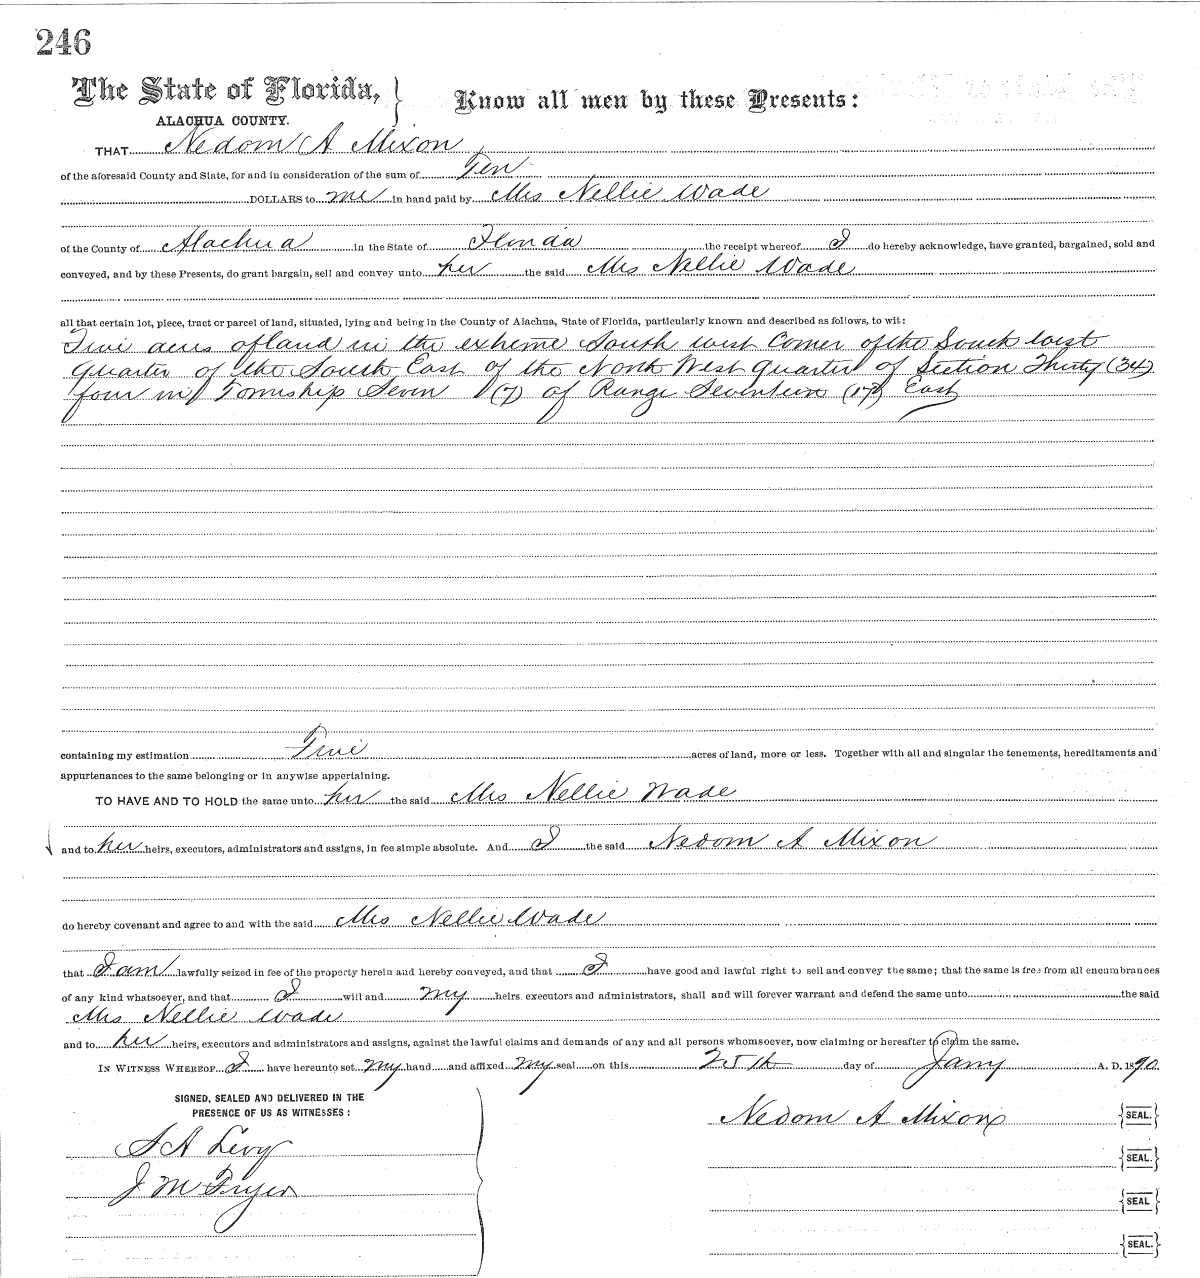 246
The State of Florida, } Know all men by these Presents:
ALACHUA COUNTY.
THAT Nedom A Mixon
of the aforesaid County and State, for and in consideration of the sum of Ten
DOLLARS to me in hand paid by Mrs Nellie Wade
of the County of Alachua in the State of Florida the receipt whereof I do hereby acknowledge, have granted, bargained, sold and
conveyed, and by these Presents, do grant bargain, sell and convey unto her the said Mrs Nellie Wade
all that certain lot, piece, tract or parcel of land, situated, lying and being in the County of Alachua, State of Florida, particularly known and described as follows, to wit:
Five acres of land in the extreme South west Corner of the South west
quarter of the South East of the North West Quarter of Section Thirty (34)
four in Township Seven (7) of Range Seventeen (17) East
containing my estimation Five acres of land, more or less. Together with all and singular the tenements, hereditaments and
appurtenances to the same belonging or in anywise appertaining.
TO HAVE AND TO HOLD the same unto her the said Mrs Nellie Wade
and to her heirs, executors, administrators and assigns, in fee simple absolute. And I the said Nedom A Mixon
do hereby covenant and agree to and with the said Mrs Nellie Wade
that I am lawfully seized in fee of the property herein and hereby conveyed, and that I have good and lawful right to sell and convey the same; that the same is free from all encumbrances
of any kind whatsoever, and that I will and my heirs executors and administrators, shall and will forever warrant and defend the same unto the said
Mrs Nellie Wade
and to her heirs, executors and administrators and assigns, against the lawful claims and demands of any and all persons whomsoever, now claiming or hereafter to claim the same.
IN WITNESS WHEREOF I have hereunto set my hand and affixed my seal on this 25th day of Jany A. D. 1890
SIGNED, SEALED AND DELIVERED IN THE
PRESENCE OF US AS WITNESSES:
Nedom A Mixon {SEAL.}
S A Levy
{SEAL.}
J M Fryer
{SEAL}
{SEAL.}